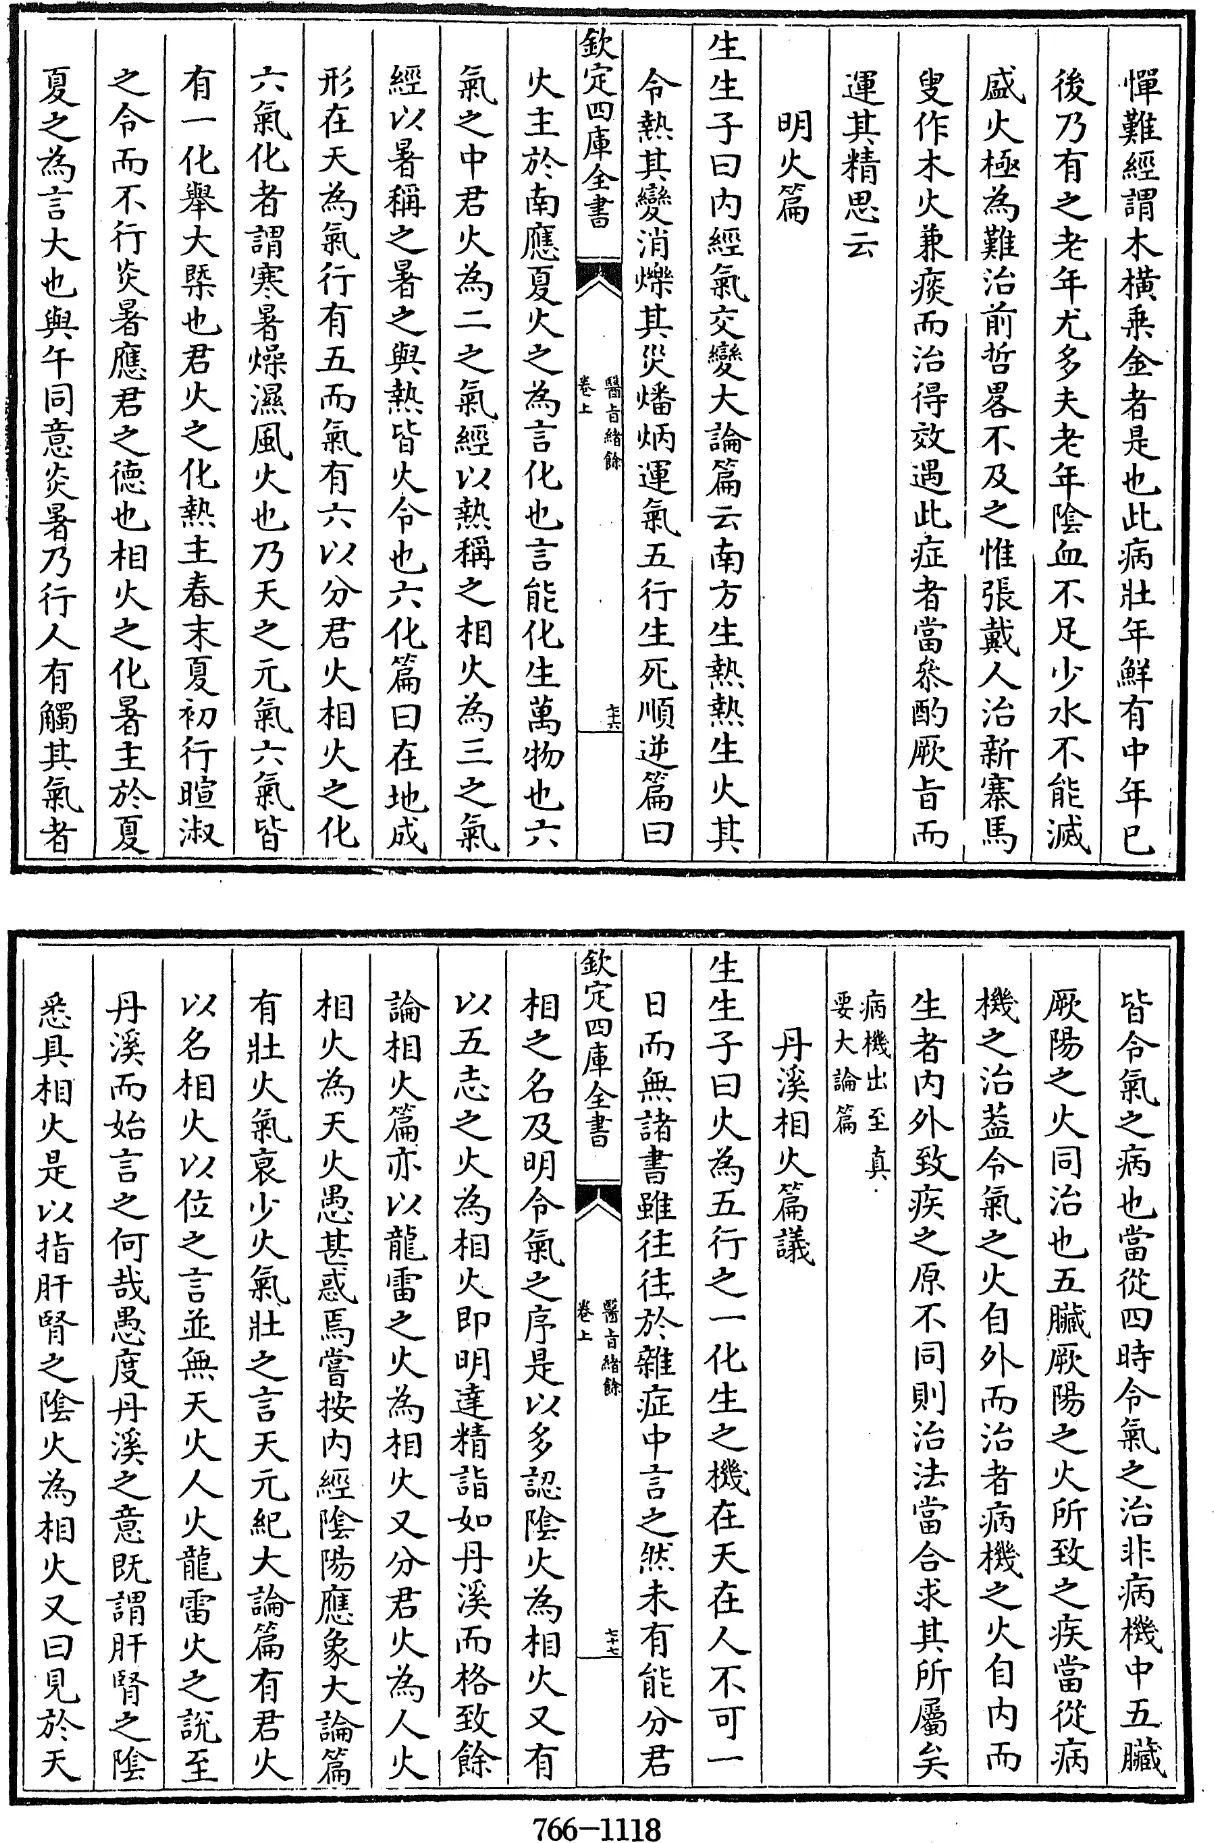 憚難經謂木橫乗金者是也此病壯年鮮有中年已
後乃有之老年尤多夫老年陰血不足少水不能滅
盛火極為難治前哲畧不及之惟張戴人治新寨馬
叟作木火兼痰而治得效遇此症者當叅酌厥旨而
運其精思云
明火篇
生生子曰内經氣交變大論篇云南方生熱熱生火其
令熱其變消爍其災燔焫運氣五行生死順逆篇曰
欽定四庫全書
醫旨緒餘
卷上
七十六
火主於南應夏火之為言化也言能化生萬物也六
氣之中君火為二之氣經以熱稱之相火為三之氣
經以暑稱之暑之與熱皆火令也六化篇曰在地成
形在天為氣行有五而氣有六以分君火相火之化
六氣化者謂寒暑燥濕風火也乃天之元氣六氣皆
有一化舉大槩也君火之化熱主春末夏初行暄淑
之令而不行炎暑應君之德也相火之化暑主於夏
夏之為言大也與午同意炎暑乃行人有觸其氣者
皆令氣之病也當從四時令氣之治非病機中五臟
厥陽之火同治也五臟厥陽之火所致之疾當從病
機之治葢令氣之火自外而治者病機之火自内而
生者内外致疾之原不同則治法當合求其所屬矣
病機出至真
要大論篇
丹溪相火篇議
生生子曰火為五行之一化生之機在天在人不可一
日而無諸書雖往往於雜症中言之然未有能分君
欽定四庫全書
醫旨緒餘
卷上
七十七
相之名及明令氣之序是以多認陰火為相火又有
以五志之火為相火即明達精詣如丹溪而格致餘
論相火篇亦以龍雷之火為相火又分君火為人火
相火為天火愚甚惑焉嘗按内經陰陽應象大論篇
有壯火氣衰少火氣壯之言天元紀大論篇有君火
以名相火以位之言並無天火人火龍雷火之說至
丹溪而始言之何哉愚度丹溪之意既謂肝腎之陰
悉具相火是以指肝腎之陰火為相火又曰見於天
766-1118